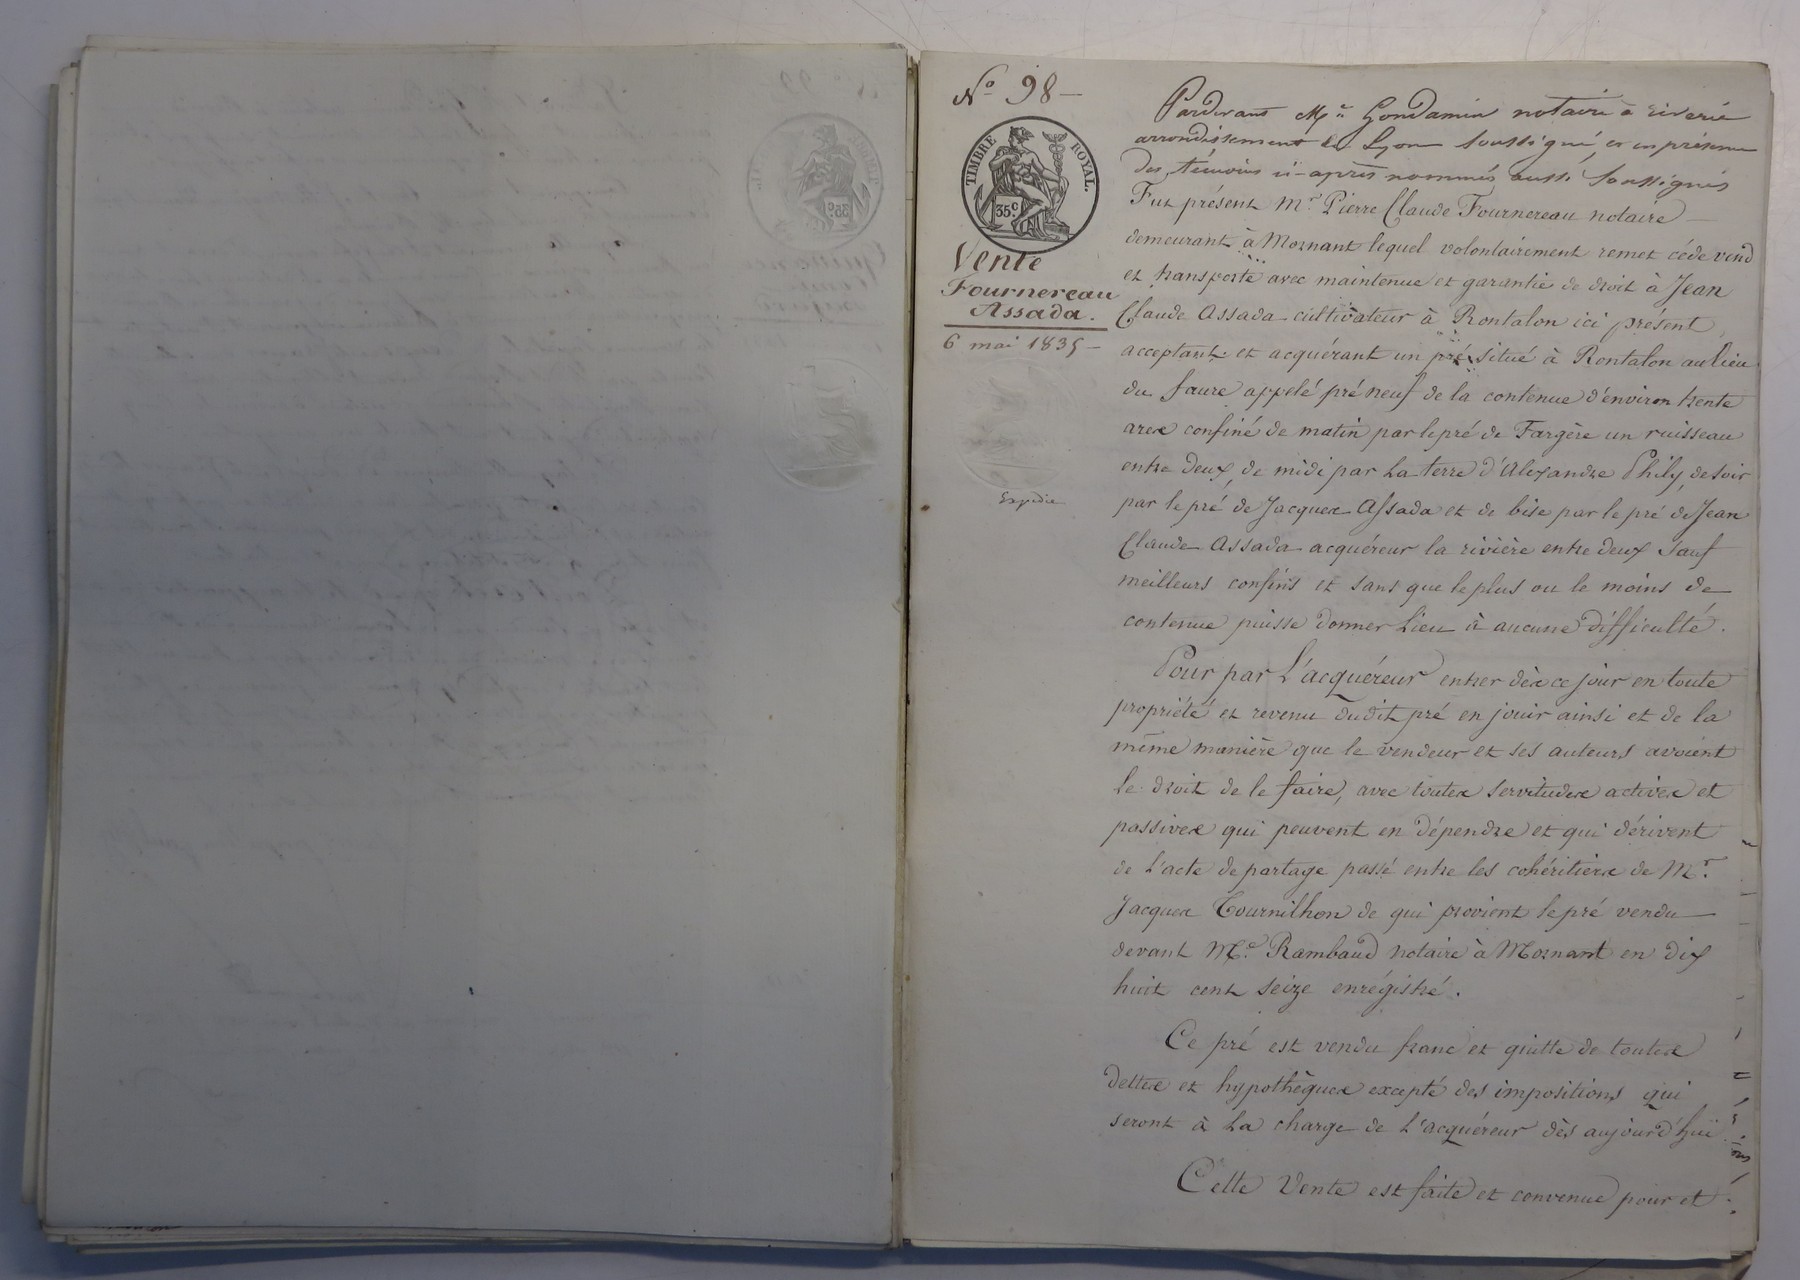 N.o 98 —
TIMBRE ROYAL.
35.c
Vente
Fournereau
Assada.
6 mai 1835 —
Expédié
Pardevant M.e Gondamin notaire à riverie
arrondissement de Lyon soussigné, et en présence
des témoins ci-après nommés aussi soussignés
Fut présent M.r Pierre Claude Fournereau notaire
demeurant à Mornant lequel volontairement remet cède vend
et transporte avec maintenue et garantie de droit à Jean
Claude Assada cultivateur à Rontalon ici présent
acceptant et acquérant un pré situé à Rontalon au lieu
du faure appelé pré neuf de la contenue d'environ trente
ares confiné de matin par le pré de Fargère un ruisseau
entre deux, de midi par la terre d'Alexandre Phily, de soir
par le pré de Jacques Assada et de bise par le pré de Jean
Claude Assada acquéreur la rivière entre deux sauf
meilleurs confins et sans que le plus ou le moins de
contenue puisse donner lieu à aucune difficulté.
Pour par l'acquéreur entrer dès ce jour en toute
propriété et revenu dudit pré en jouir ainsi et de la
même manière que le vendeur et ses auteurs avoient
le droit de le faire, avec toutes servitudes actives et
passives qui peuvent en dépendre et qui dérivent
de l'acte de partage passé entre les cohéritiers de M.r
Jacques Tournilhon de qui provient le pré vendu
devant M.e Rambaud notaire à Mornant en dix
huit cent seize enrégistré.
Ce pré est vendu franc et quitte de toutes
dettes et hypothèques excepté des impositions qui
seront à la charge de l'acquéreur dès aujourd'hui
Cette Vente est faite et convenue pour et